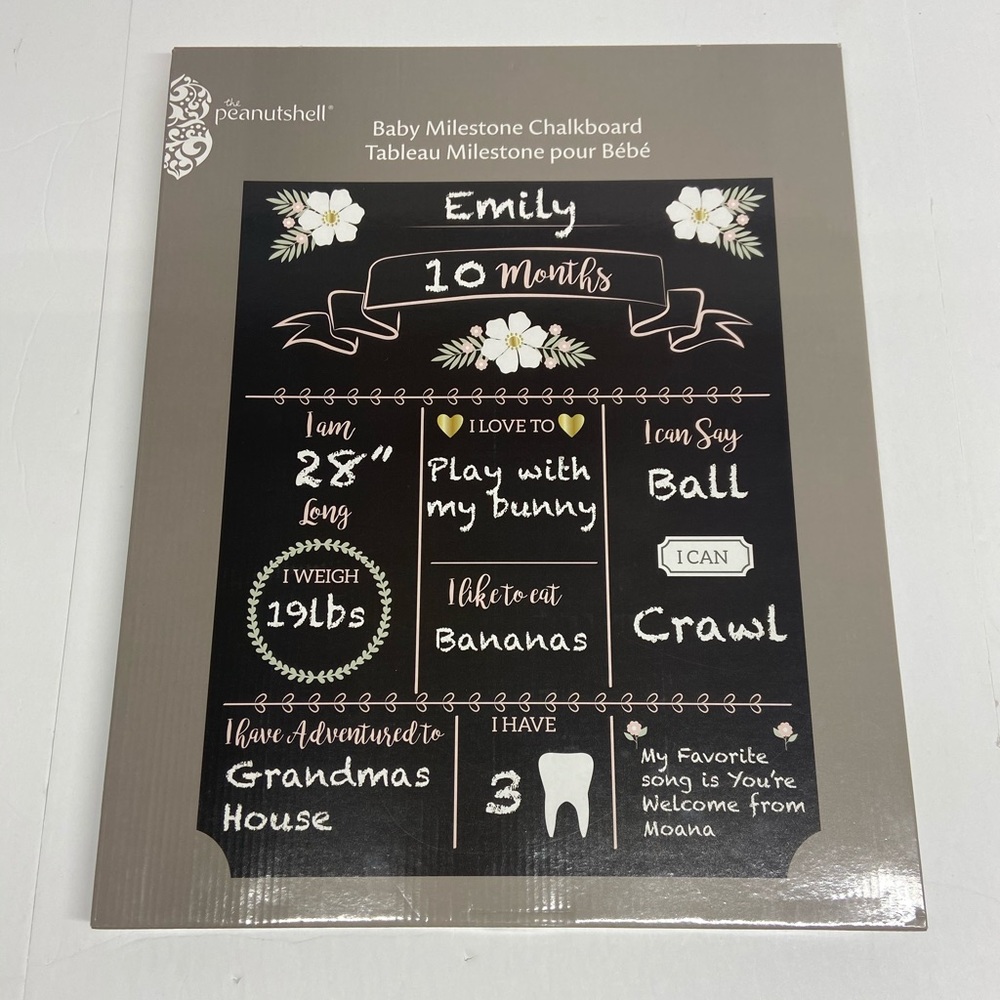 the
peanutshell®
Baby Milestone Chalkboard
Tableau Milestone pour Bébé
Emily
10 Months
I am
28"
Long
I WEIGH
19lbs
I LOVE TO
Play with
my bunny
I like to eat
Bananas
I can Say
Ball
I CAN
Crawl
I have Adventured to
Grandmas
House
I HAVE
3
My Favorite
song is You're
Welcome from
Moana